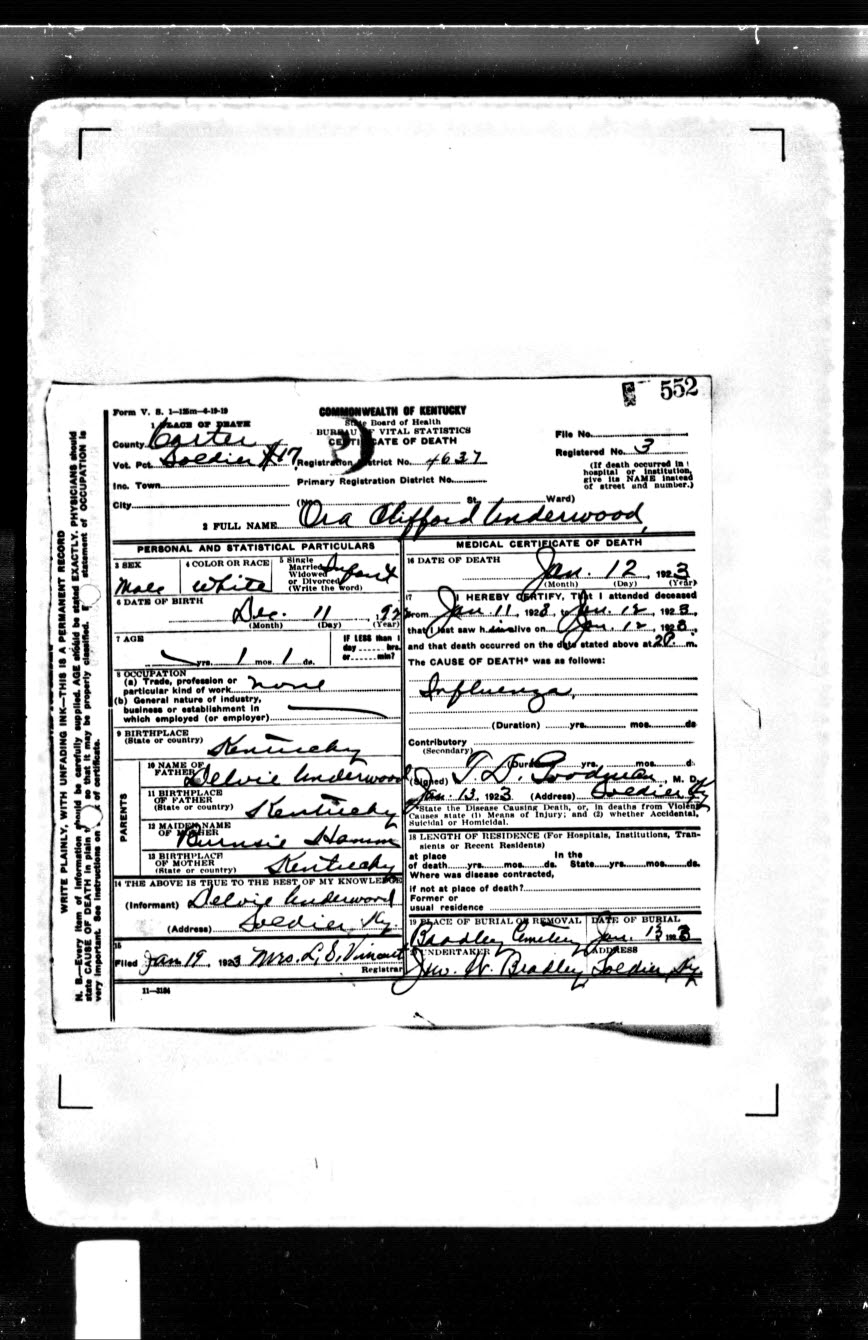 552
Form V. S. 1—125m—4-19-19
COMMONWEALTH OF KENTUCKY
State Board of Health
BUREAU OF VITAL STATISTICS
CERTIFICATE OF DEATH
1 PLACE OF DEATH
County Carter
Vot. Pct. Soldier #17 Registration District No. 4637
Inc. Town Primary Registration District No.
City (No. St. Ward)
File No.
Registered No. 3
(If death occurred in
hospital or institution,
give its NAME instead
of street and number.)
2 FULL NAME Ora Clifford Underwood
PERSONAL AND STATISTICAL PARTICULARS
3 SEX Male
4 COLOR OR RACE White
5 Single
Married
Widowed
or Divorced
(Write the word)
Infant
6 DATE OF BIRTH
Dec. 11, 192
(Month) (Day) (Year)
7 AGE
yrs. 1 mos. 1 ds.
IF LESS than 1
day hrs.
or min?
8 OCCUPATION
(a) Trade, profession or
particular kind of work none
(b) General nature of industry,
business or establishment in
which employed (or employer)
9 BIRTHPLACE
(State or country) Kentucky
PARENTS
10 NAME OF
FATHER Delvie Underwood
11 BIRTHPLACE
OF FATHER
(State or country) Kentucky
12 MAIDEN NAME
OF MOTHER Burnsie Hamm
13 BIRTHPLACE
OF MOTHER
(State or country) Kentucky
14 THE ABOVE IS TRUE TO THE BEST OF MY KNOWLEDGE
(Informant) Delvie Underwood
(Address) Soldier, Ky
15
Filed Jan 19, 1923 Mrs. L. S. Vincent
Registrar
11—3184
MEDICAL CERTIFICATE OF DEATH
16 DATE OF DEATH
Jan. 12, 1923
(Month) (Day) (Year)
17 I HEREBY CERTIFY, That I attended deceased
from Jan. 11, 1923, to Jan. 12, 1923,
that I last saw him alive on Jan. 12, 1923,
and that death occurred on the date stated above at 2P. m.
The CAUSE OF DEATH* was as follows:
Influenza,
(Duration) yrs. mos. ds
Contributory
(Secondary)
(Duration) yrs. mos. ds
(Signed) T. D. Goodman, M. D.
Jan. 13, 1923 (Address) Soldier Ky
*State the Disease Causing Death, or, in deaths from Violent
Causes state (1) Means of Injury; and (2) whether Accidental,
Suicidal or Homicidal.
18 LENGTH OF RESIDENCE (For Hospitals, Institutions, Tran-
sients or Recent Residents)
at place In the
of death yrs. mos. ds. State yrs. mos. ds.
Where was disease contracted,
if not at place of death?
Former or
usual residence
19 PLACE OF BURIAL OR REMOVAL DATE OF BURIAL
Bradley Cemetery Jan. 13, 1923
20 UNDERTAKER ADDRESS
Jno. W. Bradley, Soldier, Ky
WRITE PLAINLY, WITH UNFADING INK—THIS IS A PERMANENT RECORD
N. B.—Every item of information should be carefully supplied. AGE should be stated EXACTLY. PHYSICIANS should
state CAUSE OF DEATH in plain so that it may be properly classified. statement of OCCUPATION is
very important. See instructions on of certificate.